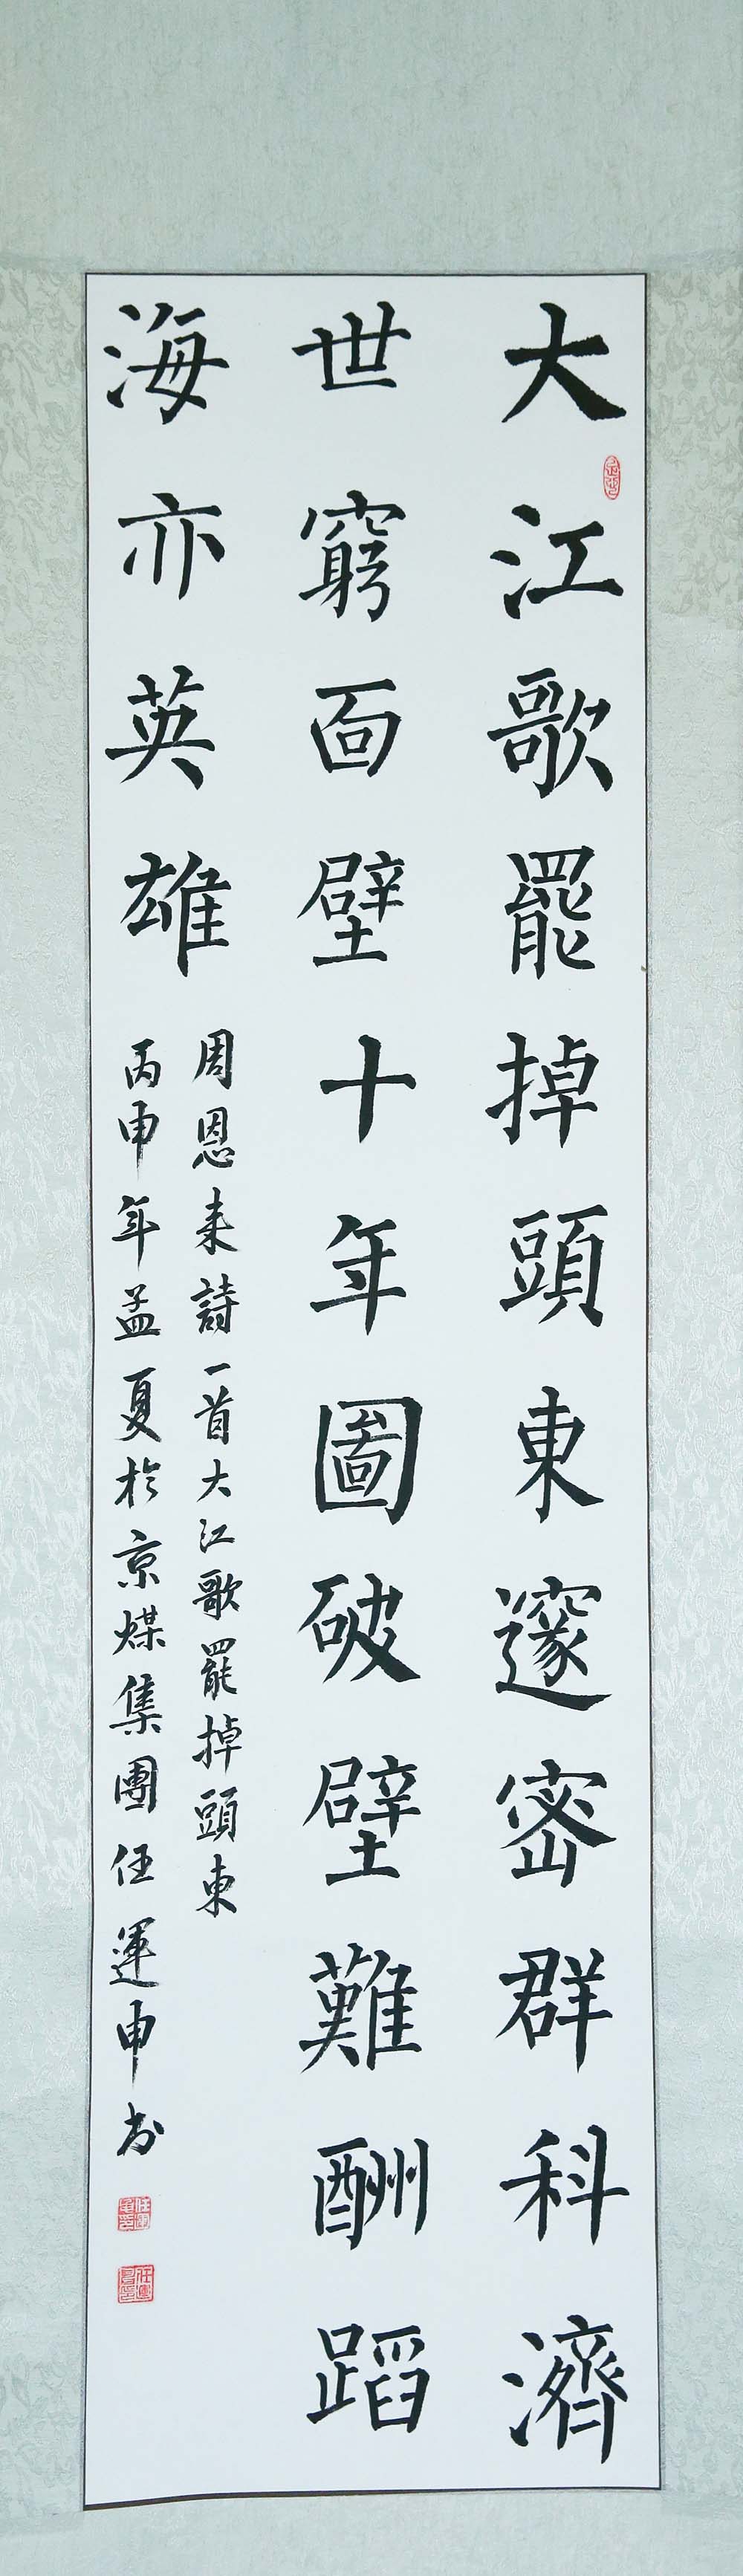 大江歌罷掉頭東邃密群科濟
世窮面壁十年圖破壁難酬蹈
海亦英雄
周恩来詩一首大江歌罷掉頭東
丙申年孟夏於京煤集團任運申书